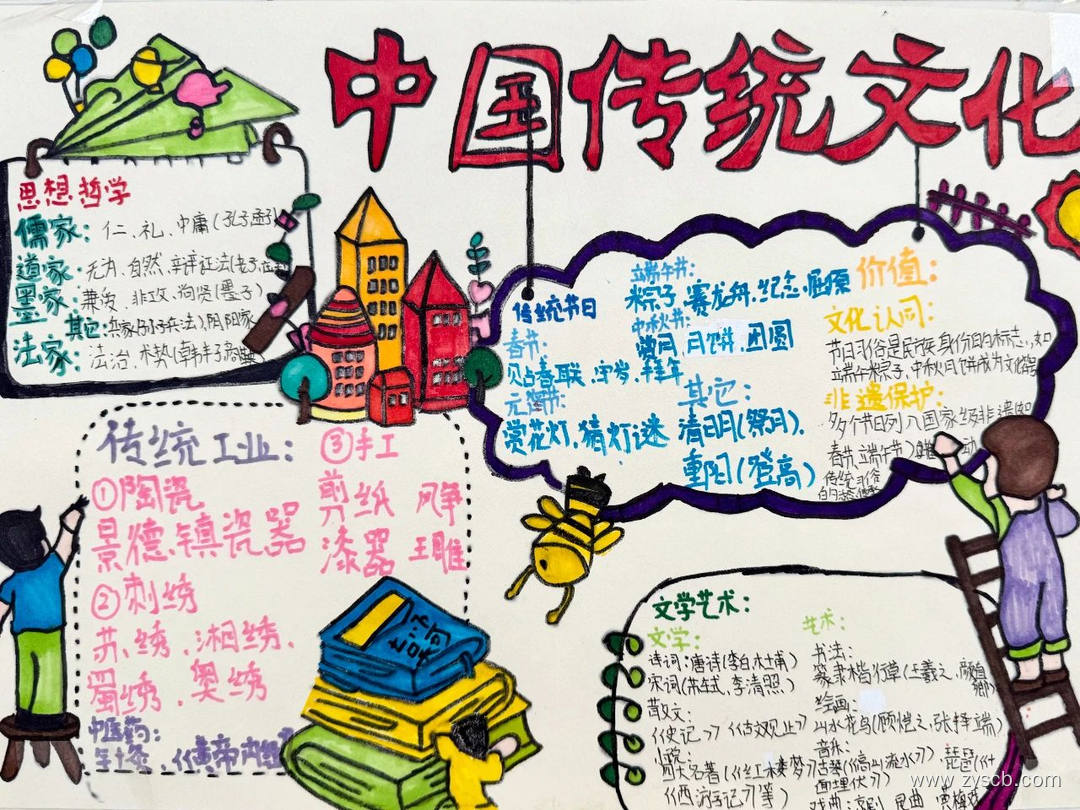 中国传统文化
思想哲学
儒家：仁、礼、中庸（孔子孟子）
道家：无为、自然、辛评证法（老子庄
墨家：兼爱、非攻、尚贤（墨子）
其它：兵家（孙子兵法），阴阳家
法家：法治、术势（韩非子商鞅
传统工业：
①陶瓷
景德镇瓷器
②刺绣
苏绣、湘绣、
蜀绣、奥绣
中医药：
《黄帝内经
③手工
剪纸 风争
漆器 玉雕
传统节日
春节：
贴春联、守岁、拜年
元宵节：
赏花灯、猜灯谜
端午节：
粽子、赛龙舟、纪念屈原
中秋节：
赏月、月饼、团圆
其它：
清明（祭月）、
重阳（登高）
价值：
文化认同：
节日习俗是民族身份的标志，如
端午粽子、中秋月饼成为文化
非遗保护：
多个节日列入国家级非遗如
春节、端午节）动
传统习俗
文学艺术：
文学：
诗词：唐诗（李白杜甫）
宋词（苏轼，李清照）
散文：
《史记》《古文观止》
小说：
四大名著（《红楼梦》
《西游记》等）
艺术：
书法：
篆隶楷行草（王羲之、颜真卿）
绘画：
山水花鸟（顾恺之、张择端）
音乐：
古琴（《高山流水》）琵琶（《十
面埋伏》）
戏曲：京剧 昆曲 黄梅戏
www.zyscb.com